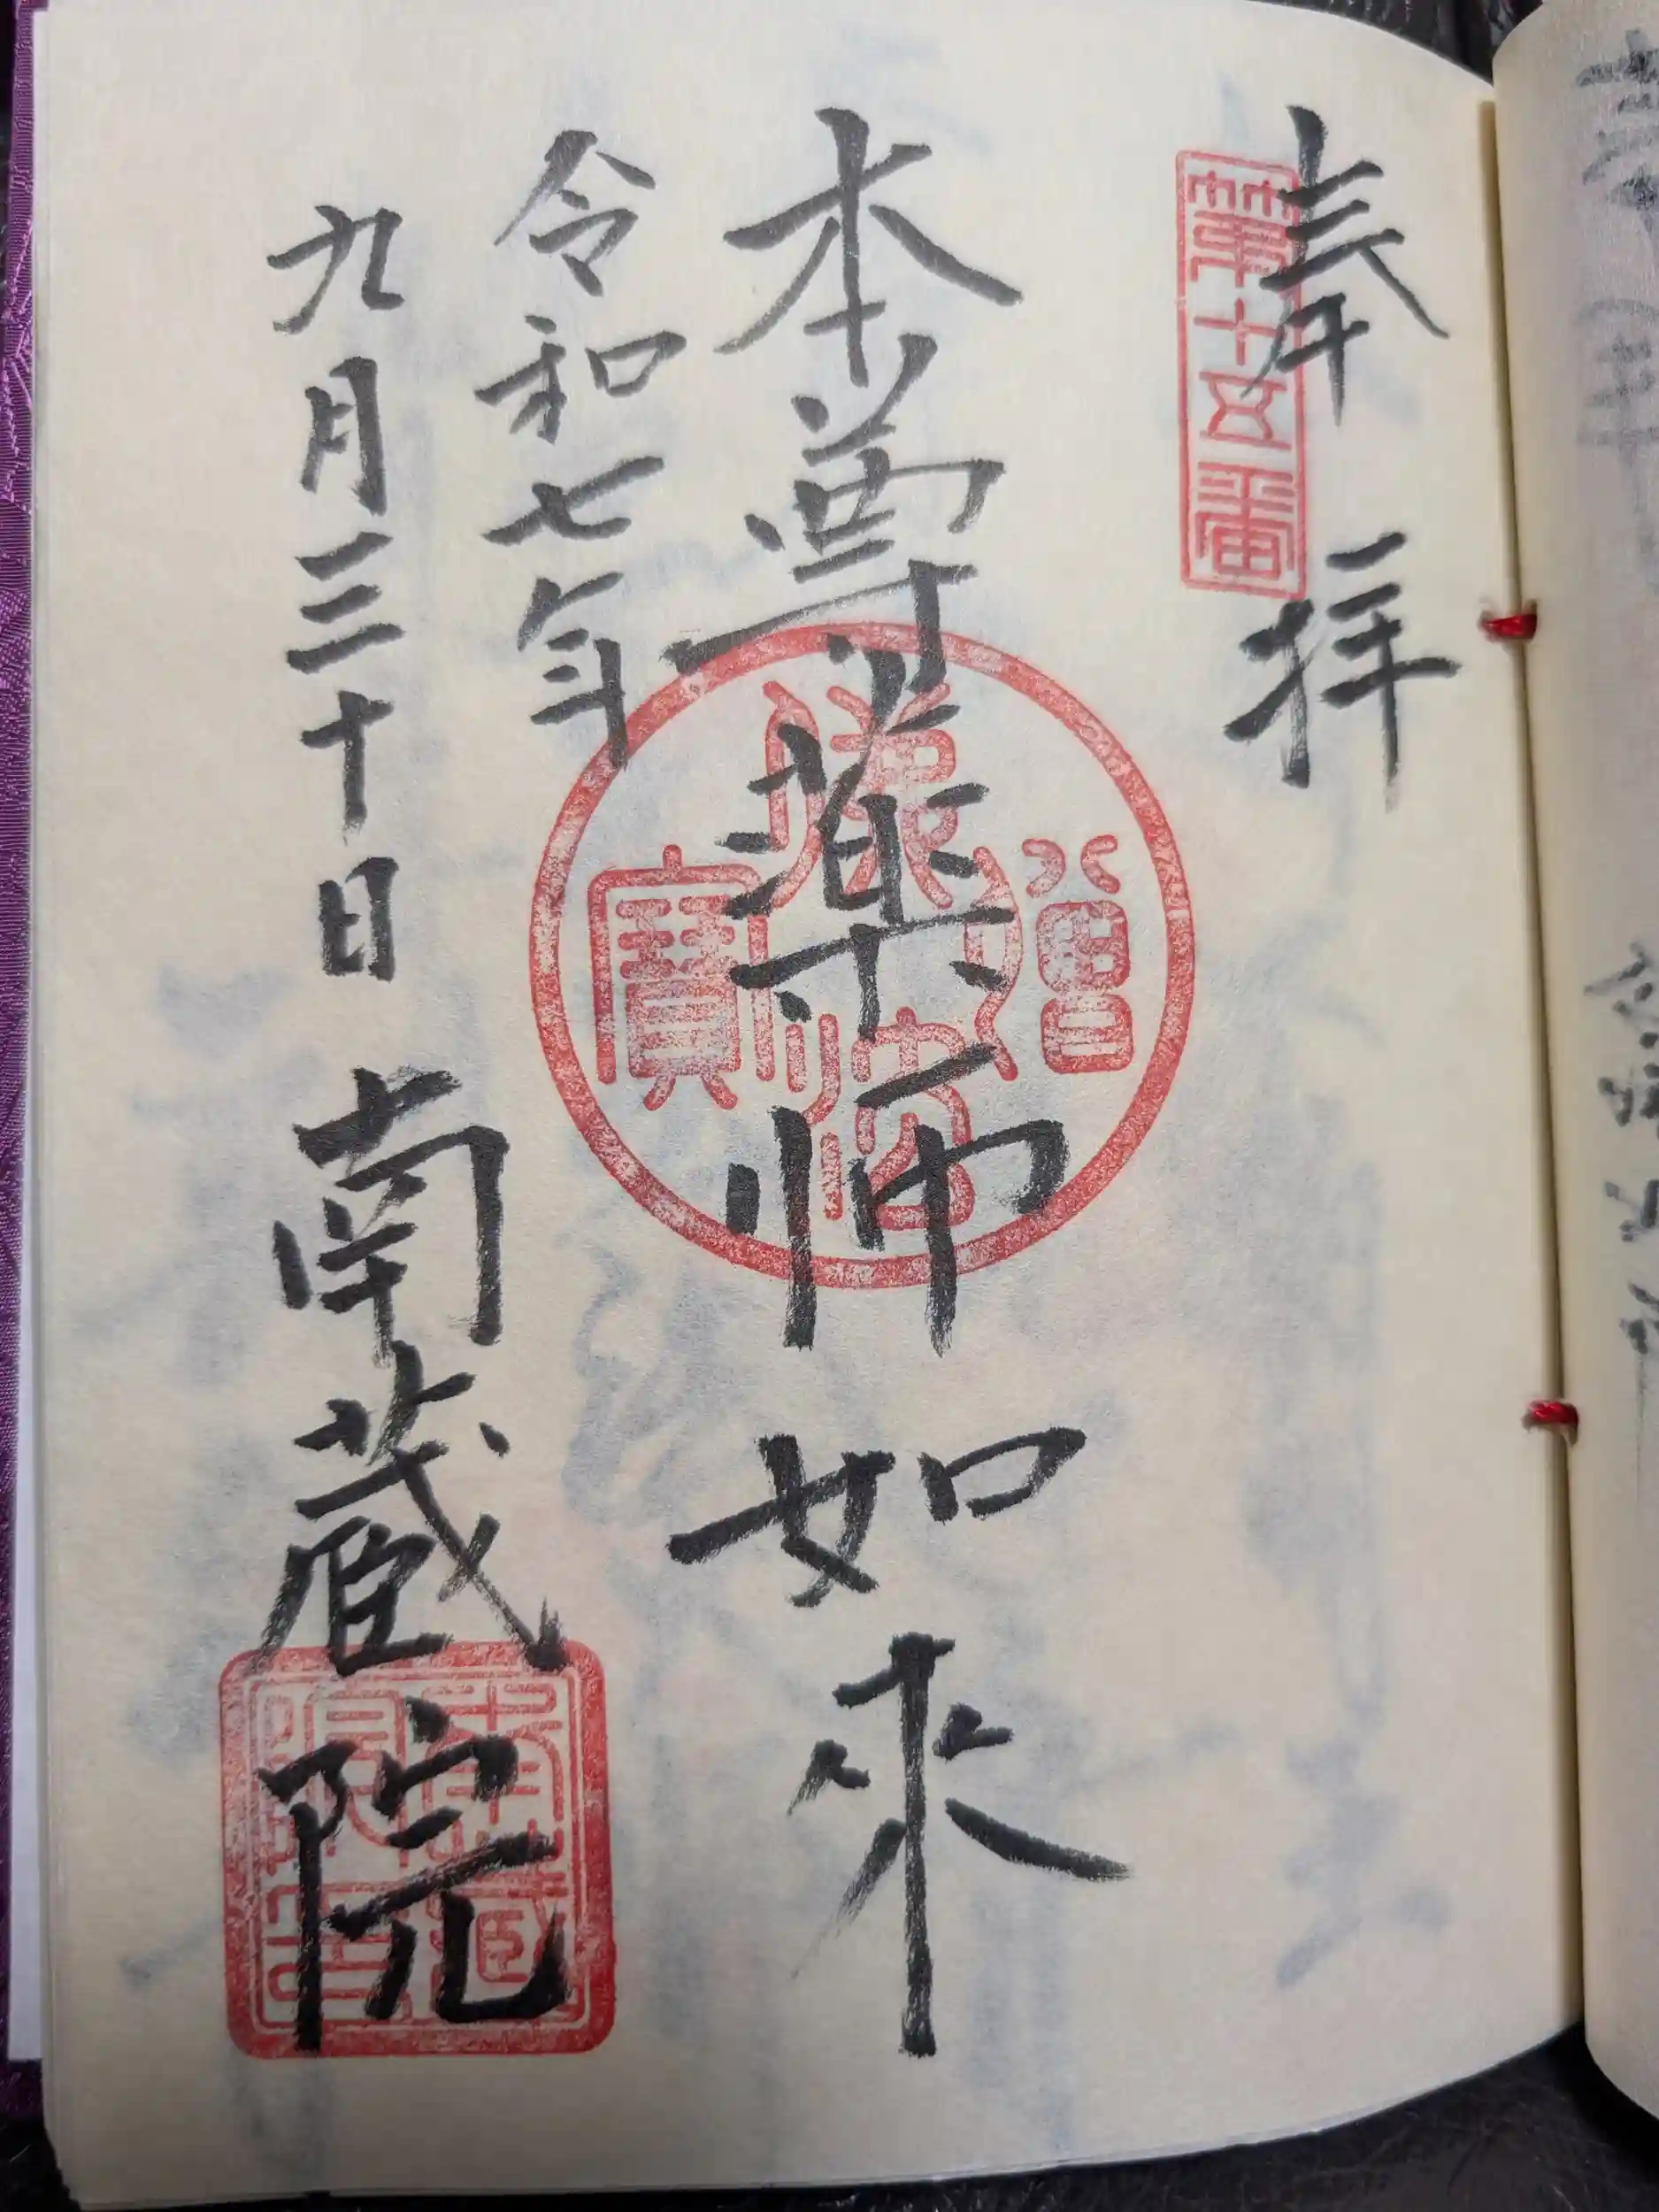 奉拝
第十五番
本尊薬師如来
佛法僧寶
令和七年
九月三十日
南蔵院